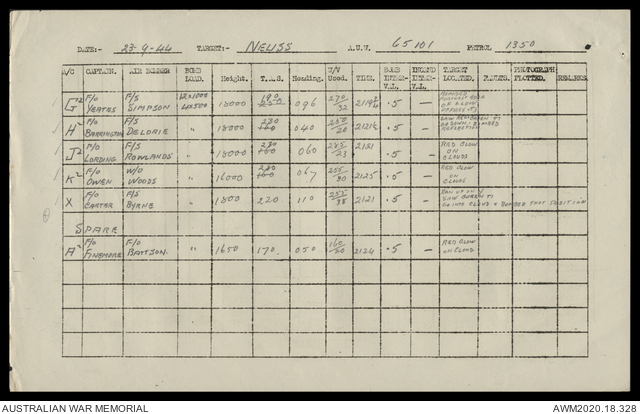 DATE:- 23-9-44 TARGET:- NEUSS A.U.W. 65101 PETROL 1350
A/C CAPTAIN. AIR BOMBER BOMB LOAD. Height. T.A.S. Heading. W/V Used. TIME. BOMB INTER- VAL. INCEND INTER- VAL. TARGET LOCATED. FUZES. PHOTOGRAPH PLOTTED. REMARKS.
G² F/O YEATES F/S SIMPSON 12x1000 4x500 18000 190 096 270/32 .5 — RED GLOW
H² F/O BARRINGTON F/S DELORIE " 18000 230 160 040 2121½ .5 — REFLECTION
J² F/O LORDING F/S ROWLANDS " 18000 230 160 060 285/23 2121 .5 — RED GLOW ON CLOUDS
K² F/O OWEN W/O WOODS " 16000 230 160 067 255/30 2125 .5 — RED GLOW ON CLOUDS
X F/O CARTER F/S BYRNE " 1800 220 110 255/38 2121 .5 — RAN UP ON
SPARE
A² F/O FINDMORE F/S BATTSON. " 1650 170 050 2124 .5 — RED GLOW ON CLOUD
AUSTRALIAN WAR MEMORIAL AWM2020.18.328